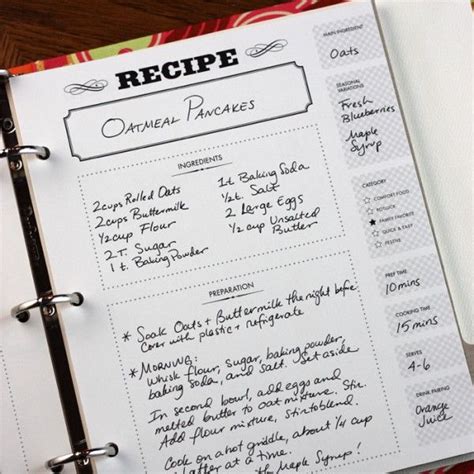 RECIPE
OATMEAL PANCAKES
INGREDIENTS
2 cups Rolled Oats
2 cups Buttermilk
1/2 cup Flour
2 T. Sugar
1 t. Baking Powder
1 t. Baking Soda
1/2 t. Salt
2 Large Eggs
1/2 cup Unsalted
Butter
PREPARATION
* Soak Oats + Buttermilk the night before
Cover with plastic + refrigerate
* MORNING:
Whisk flour, sugar, baking powder,
baking soda, and salt. Set aside
In second bowl, add eggs and
melted butter to oat mixture. Stir.
Add flour mixture, stir to blend.
Cook on a hot griddle, about 1/4 cup
batter at a time.
Maple Syrup!
MAIN INGREDIENT
Oats
SEASONAL
VARIATIONS
Fresh
Blueberries
Maple
Syrup
CATEGORY
COMFORT FOOD
POTLUCK
FAMILY FAVORITE
QUICK & EASY
FESTIVE
PREP TIME
10 mins
COOKING TIME
15 mins
SERVES
4-6
DRINK PAIRING
Orange
Juice